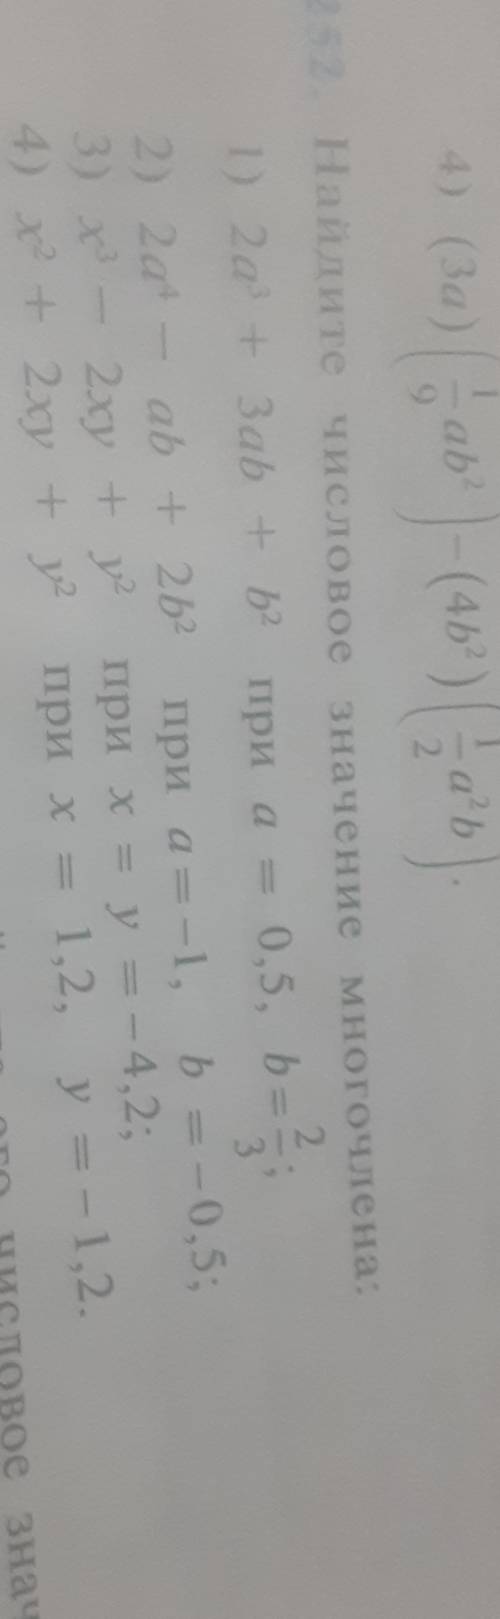 4) (3a)(1/9 ab²) − (4b²)(1/2 a²b).
252. Найдите числовое значение многочлена:
1) 2a³ + 3ab + b² при a = 0,5, b = 2/3;
2) 2a⁴ − ab + 2b² при a = −1, b = −0,5;
3) x³ − 2xy + y² при x = y = −4,2;
4) x² + 2xy + y² при x = 1,2, y = −1,2.
числовое знач